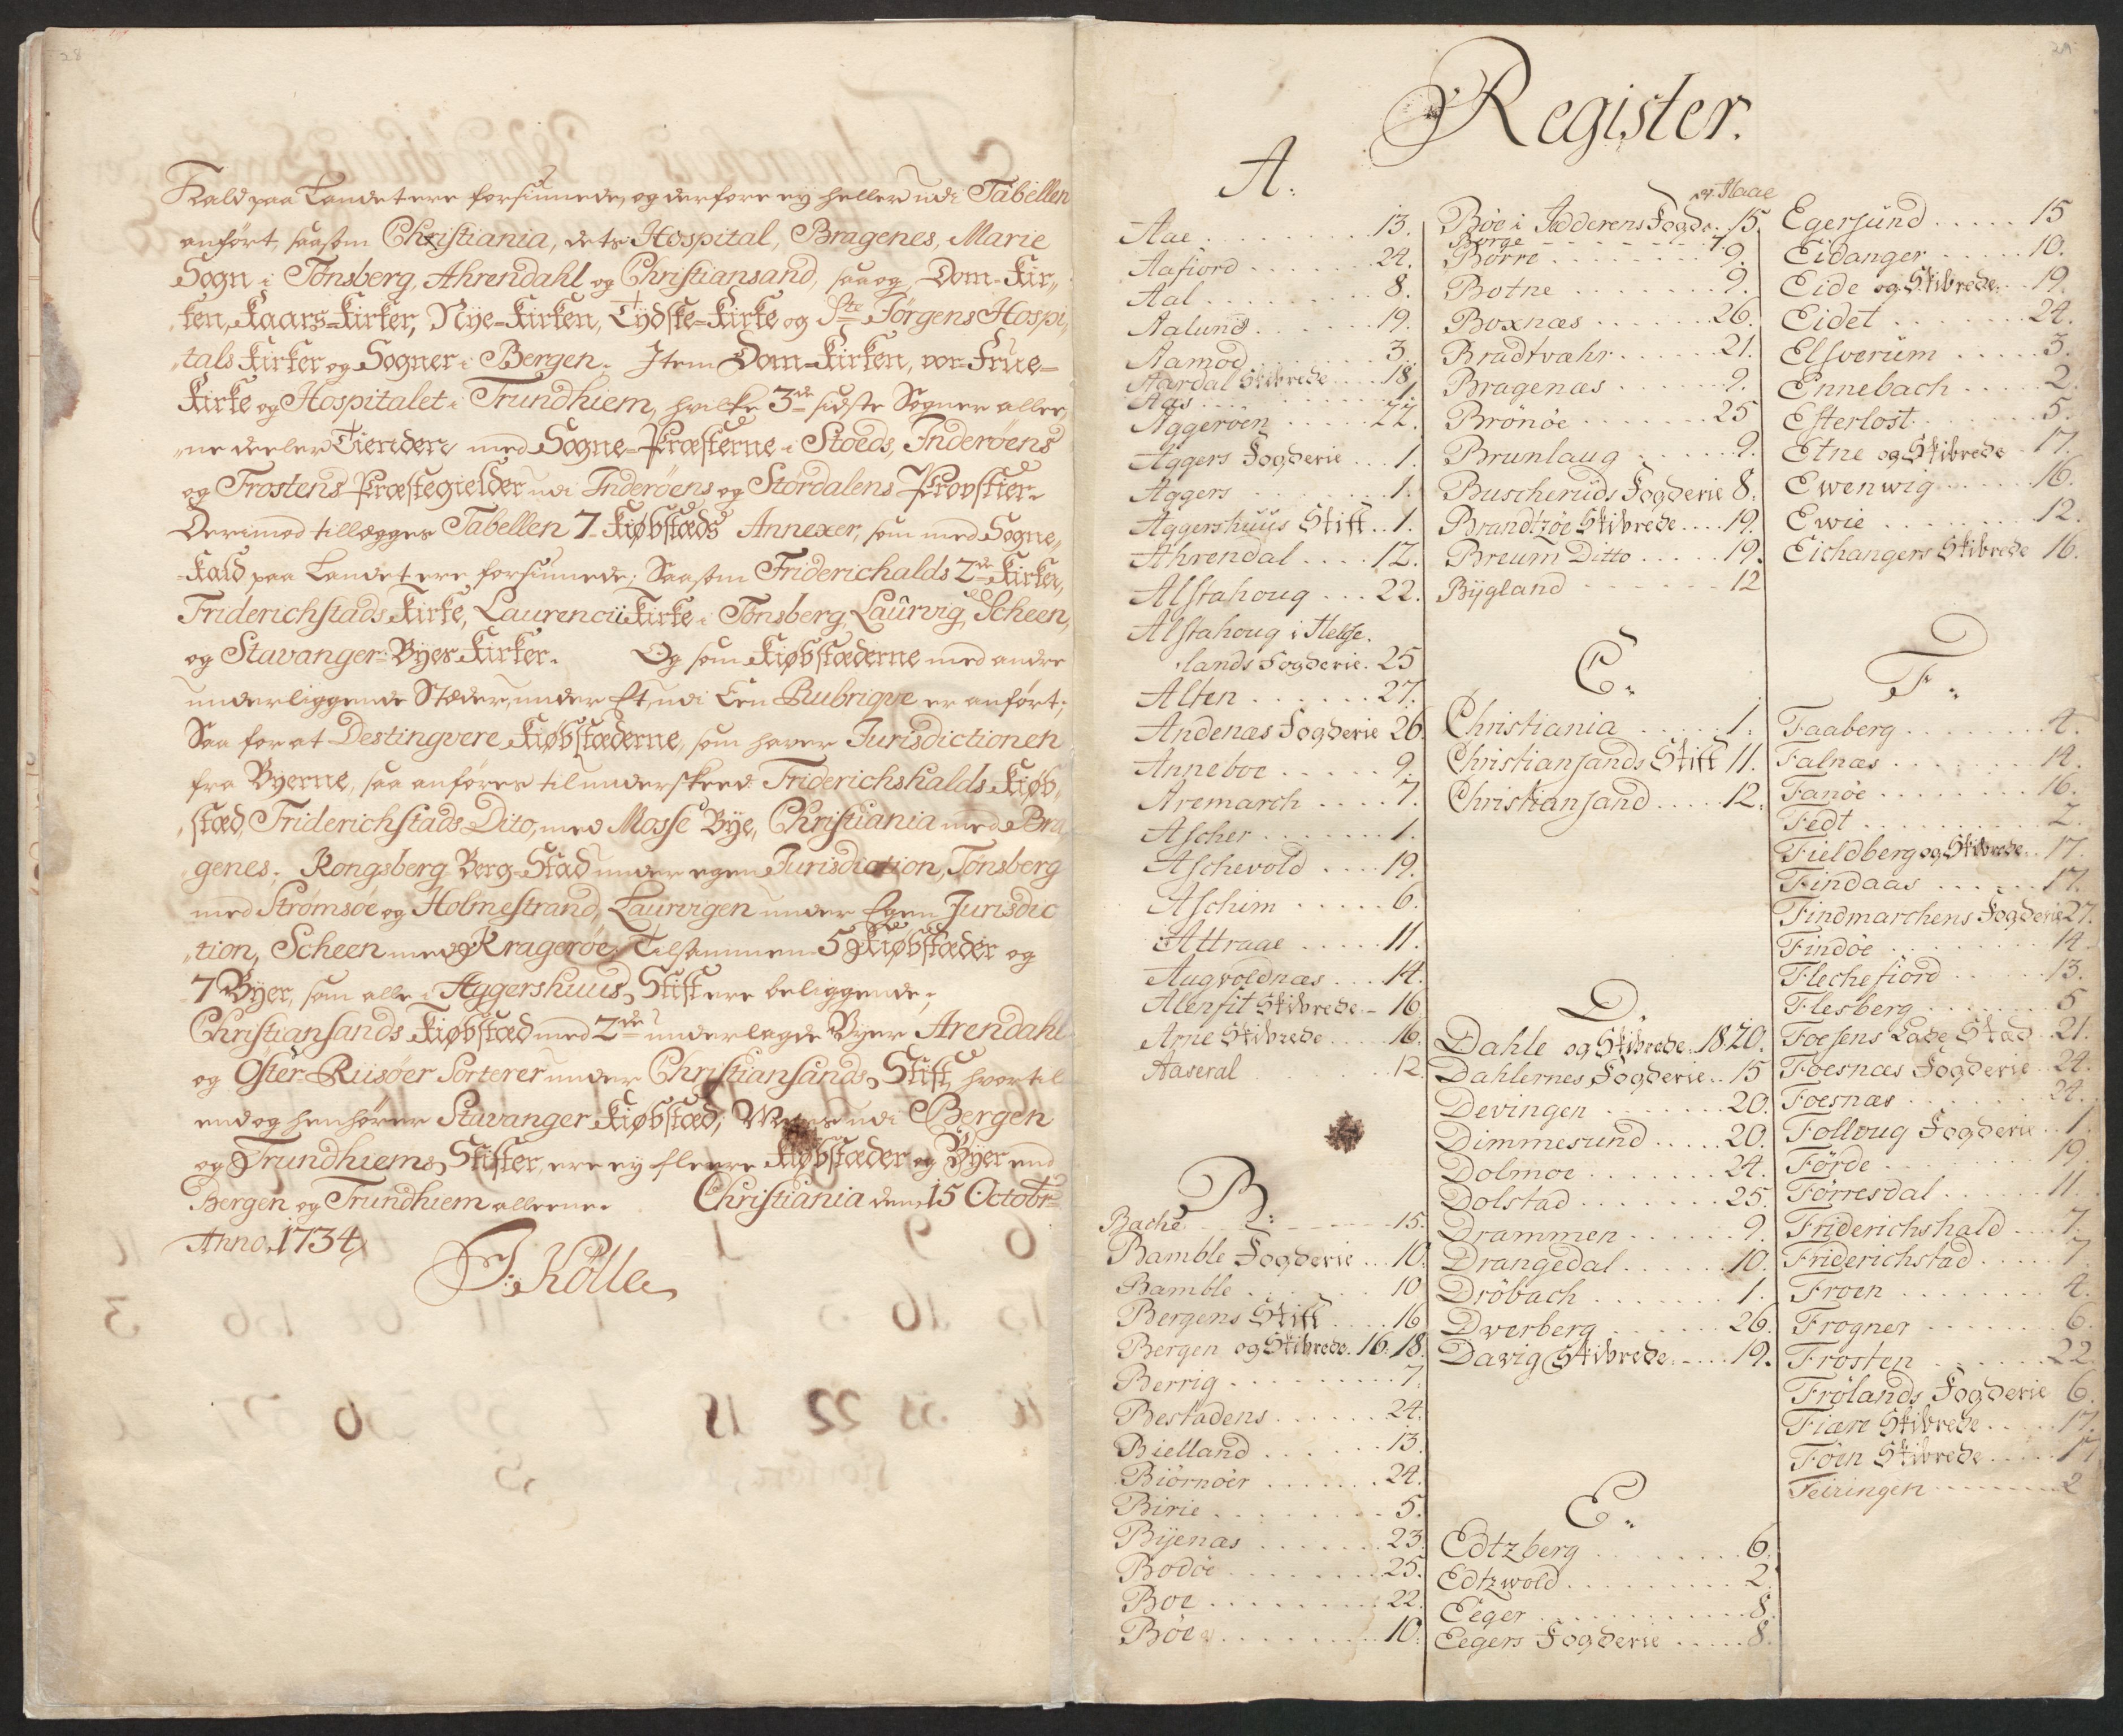 28
Kald paa Landet ere forsiunede, og derfore ey heller udi Tabellen
anført, saasom Christiania, dets Hospital, Bragenes, Marie
Sogn i Tønsberg, Ahrendahl og Christiansand, saa og Dom-Kir„
„ken, Kaars-Kirker, Nÿe-Kirken, Tÿdske-Kirke og Ste Jörgens Hospi„
„tals Kirker og Sogner i Bergen. Item Dom-Kirken, vor-Frue-
Kirke og Hospitalet i Trundhiem, hvilke 3de sidste Sogner allee„
„ne deeler Tienden med Sogne-Præsterne i Stoeds, Inderöens
og Frostens Præstegielder udi Inderöens og Stordalens Provstier.
Derimod tillægges Tabellen 7 Kiøbstæds Annexer, som med Sogne„
-Kald paa Landet ere forsiunede; Saasom Friderichalds 2de Kirker,
Friderichstads Kirke, Laurencii Kirke i Tønsberg, Laurvig, Scheen,
og Stavanger Byes Kirker. Og som Kiøbstæderne med andre
underliggende Stæder, under Et, udi Een Rubrique er anført;
Saa for at Destingvere Kiøbstæderne, som haver Jurisdictionen
fra Byerne, saa anføres til underskeed: Friderichshalds Kiøb„
„stæd, Friderichstads Dito, med Mosse Bye, Christiania med Bra„
„genes, Kongsberg Berg-Stad under egen Jurisdiction, Tønsberg
med Strømsöe og Holmestrand, Laurvigen under Egen Jurisdic
„tion, Scheen med Kragerøe, Tilsammen 5 Kiøbstæder og
7 Byer, som alle i Aggershuus Stift ere beliggende;
Christiansands Kiøbstæd med 2de underlagde Byer Arendahl
og Oster-Riisöer Sorterer under Christiansands Stift, hvor til
end og henhörer Stavanger Kiøbstæd; udi Bergen
og Trundhiems Stifter, ere ey fleere Kiøbstæder og Byer end
Bergen og Trundhiem alleene. Christiania den 15 Octobr
Anno 1734
J: Kölle
29
Register.
A:
Aae 13.
Aafiord 24.
Aal 8.
Aalund 19.
Aamod 3.
Aardal Skibrede 18.
Aas 1.
Aggeroen 22.
Aggers Fogderie 1.
Aggers 1.
Aggershuus Stift 1.
Ahrendal 12.
Alstahoug 22.
Alstahoug i Helge.
„lands Fogderie. 25
Alten 27.
Andenæs Fogderie 26.
Anneboe 9.
Aremarch 7.
Ascher 1.
Aschevold 19.
Aschim 6.
Attraae 11.
Augvoldnæs 14.
Alenfit Skibrede 16.
Arne Skibrede 16.
Aaseral 12.
B:
Bache 15.
Bamble Fogderie 10.
Bamble 10
Bergens Stift 16
Bergen og Skibrede. 16. 18.
Berrig 7.
Bestadens 24.
Bielland 13.
Biörnöer 24.
Birie 5.
Bÿenæs 23.
Bodöe 25.
Boe 22.
Böe 10.
Böe i Jædderens Fogde. 15.
Borge 7.
Börre 9.
Botne 9.
Boxnæs 26.
Bradtvæhr 21.
Bragenæs 9.
Brönöe 25
Brunlaug 9.
Buscheruds Fogderie 8.
Brandtzöe Skibrede 19.
Breum Ditto 19.
Bÿgland 12
C.
Christiania 1.
Christiansands Stift 11.
Christiansand 12.
D.
Dahle og Skibrede. 18. 20.
Dahlernes Fogderie 15
Devingen 20.
Dimmesund 20.
Dolmoe 24.
Dolstad 25.
Drammen 9.
Drangedal 10.
Dröbach 1.
Dverberg 26.
Davig Skibrede 19.
E.
Edtzberg 6.
Edtzwold 2.
Eeger 8.
Eegers Fogderie 8.
Egersund 15
Eidanger 10.
Eide og Skibrede 19.
Eidet 24.
Elsverum 3.
Ennebach 2.
Esterlost 5.
Etne og Skibrede 17.
Ewenwig 16.
Ewie 12.
Eichangers Skibrede 16.
F.
Faaberg 4.
Falnæs 14.
Fanöe 16.
Fedt 2.
Fieldberg og Skibrede 17.
Findaas 17.
Findmarchens Fogderie 27.
Findöe 14.
Flechefiord 13.
Flesberg 5
Foesens Lade Stad 21.
Foesnæs Fogderie 24.
Foesnæs 24.
Folloug Fogderie 1.
Förde 19.
Förresdal 11.
Friderichshald 7.
Friderichstad 7.
Froen 4.
Frogner 6.
Frosten 22.
Frölands Fogderie 6.
Fiære Skibrede 17.
Föen Skibrede 17
Feiringen 2